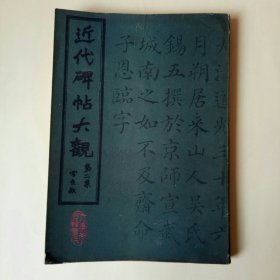 近代碑帖大觀
第二集
道光 十年六
月朔居采山人吳氏
錫五撰於京師宣武
城南之如不及齋命
子恩臨字